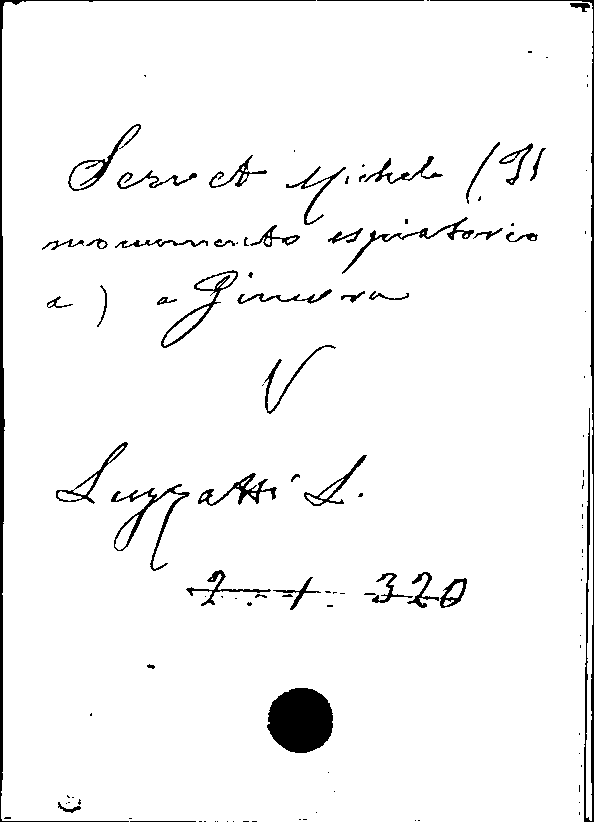 Servet Michele (Il
monumento espiatorio
a) a Ginevra
V
Luzzatti L.
2 . 1 . 320